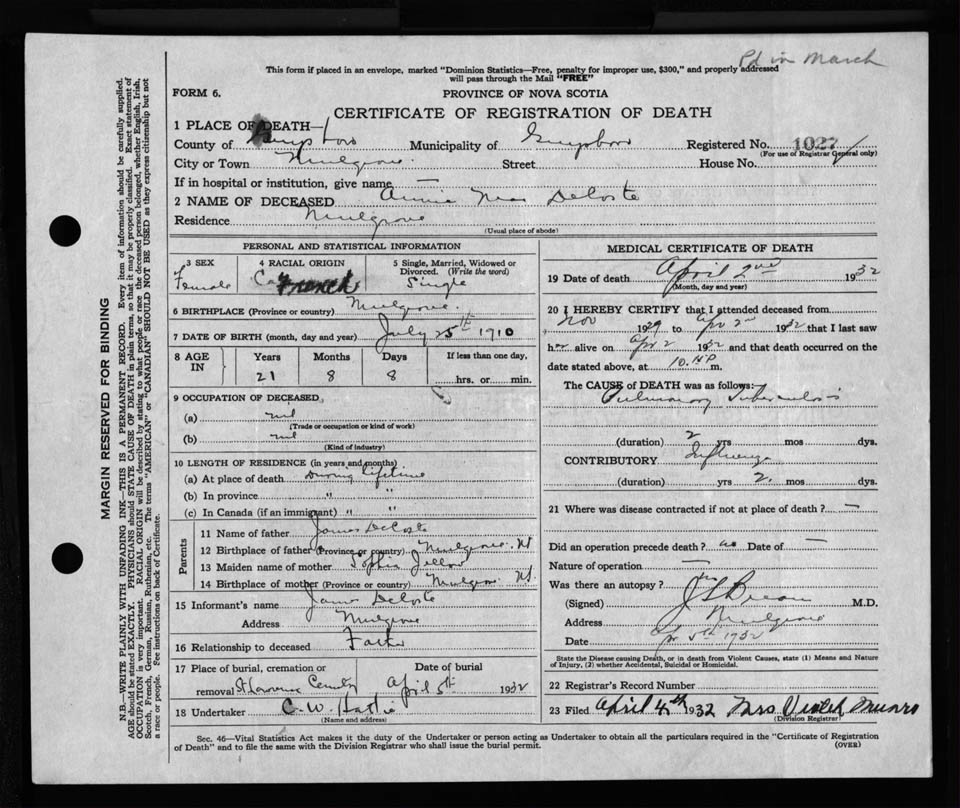 Pd in March
This form if placed in an envelope, marked "Dominion Statistics—Free, penalty for improper use, $300," and properly addressed
will pass through the Mail "FREE"
FORM 6.
PROVINCE OF NOVA SCOTIA
CERTIFICATE OF REGISTRATION OF DEATH
1 PLACE OF DEATH—
County of Guysboro Municipality of Guysboro Registered No. 1027
(For use of Registrar General only)
City or Town Mulgrave Street House No.
If in hospital or institution, give name —
2 NAME OF DECEASED Annie Mae DeCoste
Residence Mulgrave
(Usual place of abode)
PERSONAL AND STATISTICAL INFORMATION
3 SEX
Female
4 RACIAL ORIGIN
French
5 Single, Married, Widowed or Divorced. (Write the word)
Single
6 BIRTHPLACE (Province or country) Mulgrave
7 DATE OF BIRTH (month, day and year) July 25th 1910
8 AGE IN
Years Months Days If less than one day,
21 8 8 hrs. or min.
9 OCCUPATION OF DECEASED
(a) nil
(Trade or occupation or kind of work)
(b) nil
(Kind of industry)
10 LENGTH OF RESIDENCE (in years and months)
(a) At place of death During lifetime
(b) In province " "
(c) In Canada (if an immigrant) " "
Parents
11 Name of father James DeCoste
12 Birthplace of father (Province or country) Mulgrave NS
13 Maiden name of mother Sophia
14 Birthplace of mother (Province or country) Mulgrave NS
15 Informant's name James DeCoste
Address Mulgrave
16 Relationship to deceased Father
17 Place of burial, cremation or removal Cemetery
Date of burial
April 5th 1932
18 Undertaker C. W. Hattie
(Name and address)
MEDICAL CERTIFICATE OF DEATH
19 Date of death April 2nd 1932
(Month, day and year)
20 I HEREBY CERTIFY that I attended deceased from
Nov 1929 to Apr 2nd 1932 that I last saw
her alive on Apr 2 1932 and that death occurred on the
date stated above, at 10. P m.
The CAUSE of DEATH was as follows:
Pulmonary Tuberculosis
(duration) 2 yrs mos dys.
CONTRIBUTORY Influenza
(duration) yrs 2 mos dys.
21 Where was disease contracted if not at place of death? —
Did an operation precede death? no Date of —
Nature of operation —
Was there an autopsy? no
(Signed) M.D.
Address Mulgrave
Date Apr 5th 1932
State the Disease causing Death, or in death from Violent Causes, state (1) Means and Nature
of Injury, (2) whether Accidental, Suicidal or Homicidal.
22 Registrar's Record Number
23 Filed April 4th 1932 Mrs Violet Munro
(Division Registrar)
Sec. 46—Vital Statistics Act makes it the duty of the Undertaker or person acting as Undertaker to obtain all the particulars required in the "Certificate of Registration
of Death" and to file the same with the Division Registrar who shall issue the burial permit.
(OVER)
MARGIN RESERVED FOR BINDING
N.B.—WRITE PLAINLY WITH UNFADING INK—THIS IS A PERMANENT RECORD. Every item of information should be carefully supplied.
AGE should be stated EXACTLY. PHYSICIANS should STATE CAUSE OF DEATH in plain terms, so that it may be properly classified. Exact statement of
OCCUPATION is very important. RACIAL ORIGIN will be described by stating to what people or race the deceased person belonged, whether English, Irish,
Scotch, French, German, Russian, Ruthenian, etc. The terms "AMERICAN" or "CANADIAN" SHOULD NOT BE USED as they express citizenship but not
a race or people. See instructions on back of Certificate.